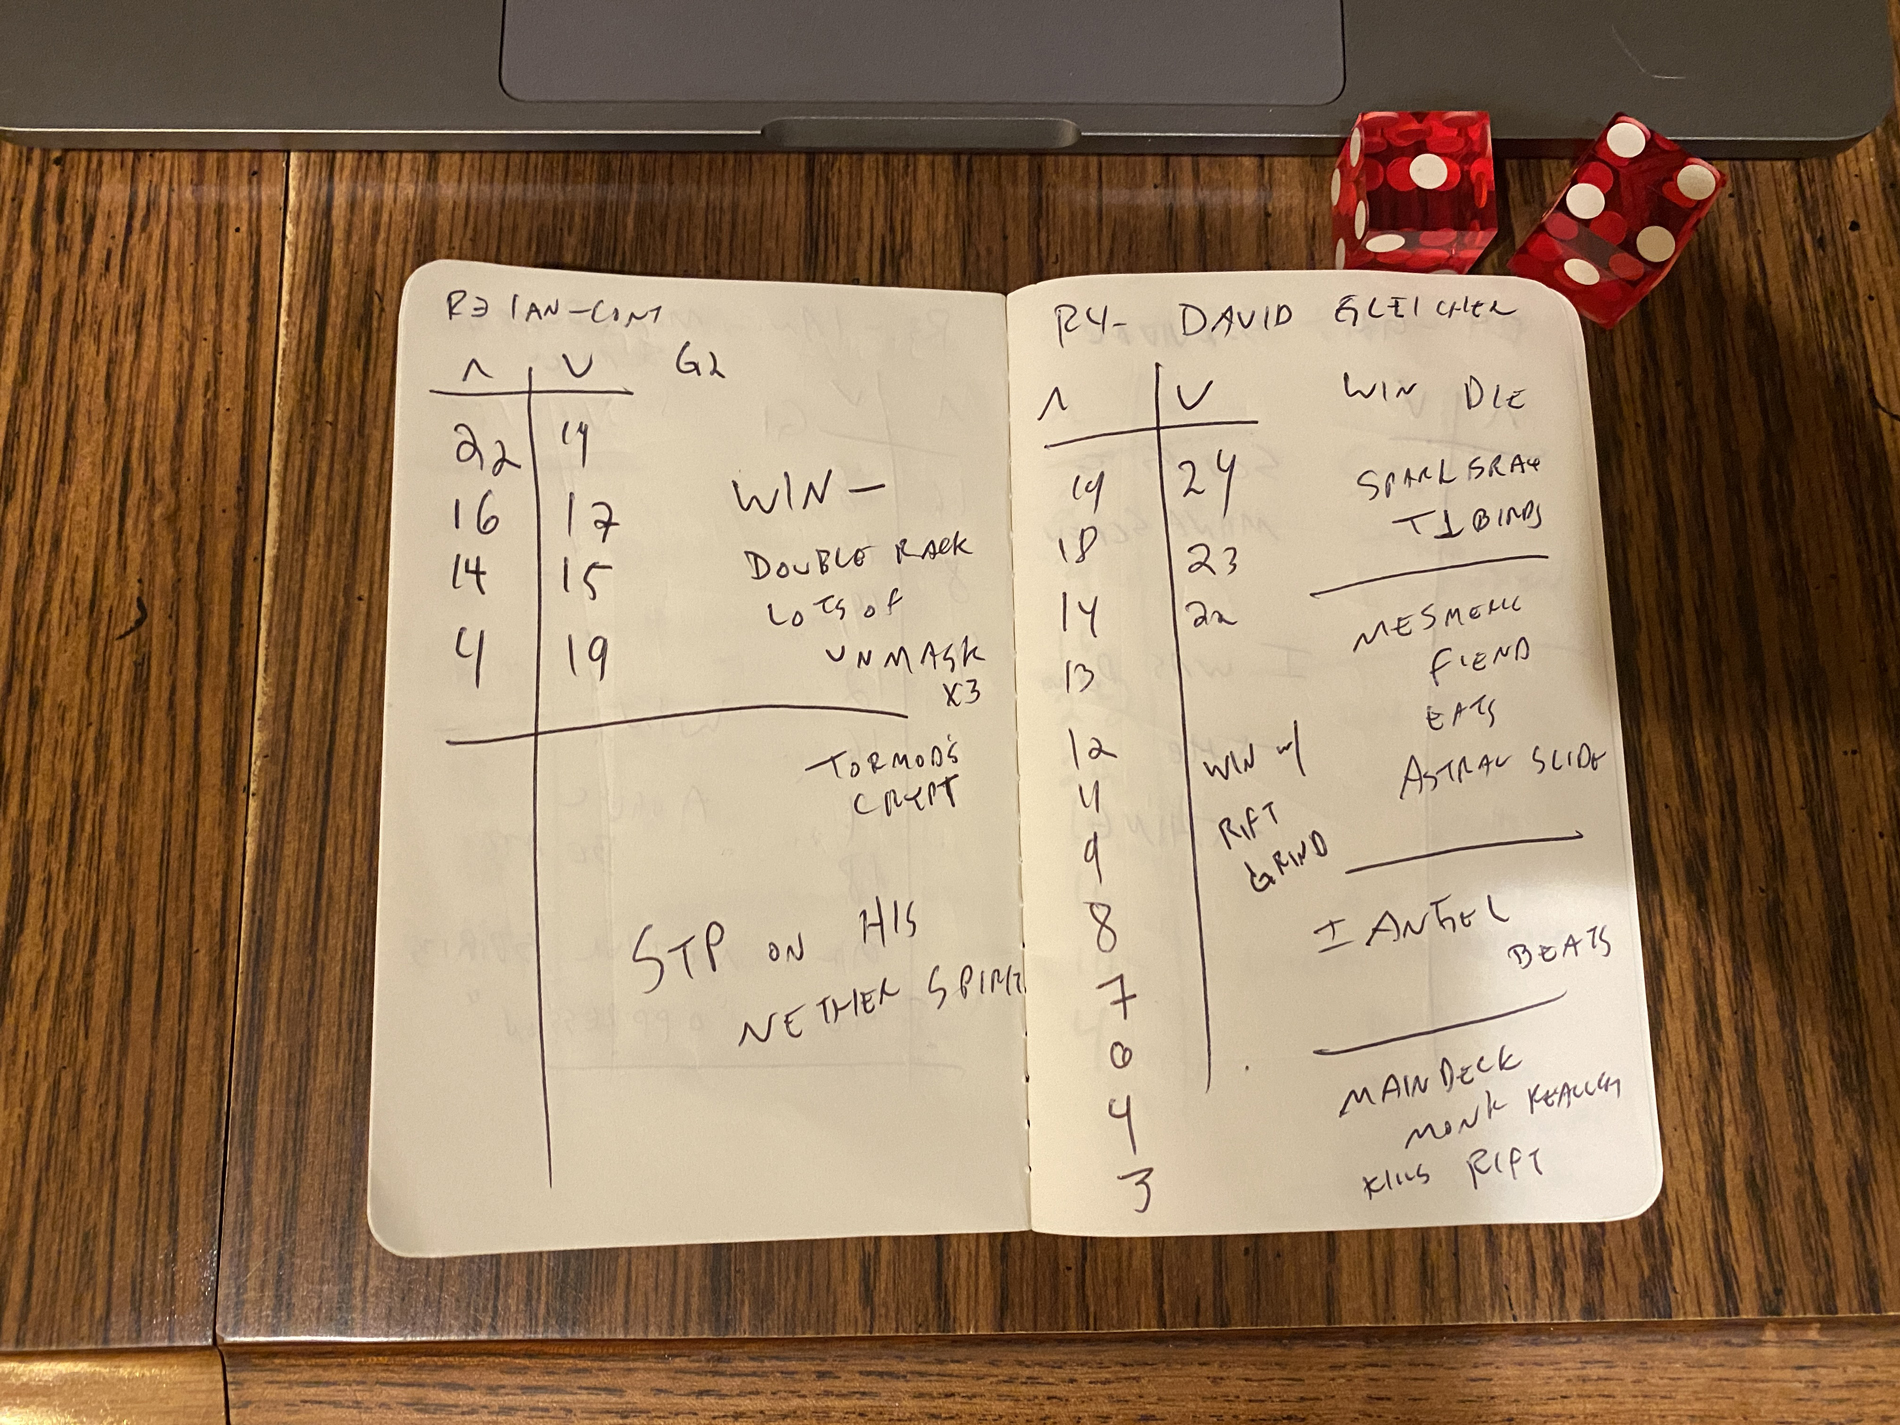 R3 IAN-CONT
G2
Λ V
22 19
16 17
14 15
4 19
WIN —
DOUBLE RACK
LOTS OF
UNMASK
X3
TORMOD'S
CRYPT
STP ON HIS
NETHER SPIRIT
R4- DAVID GLEICHER
Λ V
19 24
18 23
14 22
13
12
4
9
8
7
6
4
3
WIN W/
RIFT
GRIND
WIN DIE
SPARK SPRAY
T1 BIRDS
MESMERIC
FIEND
EATS
ASTRAL SLIDE
I ANGEL
BEATS
MAINDECK
MONK REALIST
KILLS RIFT